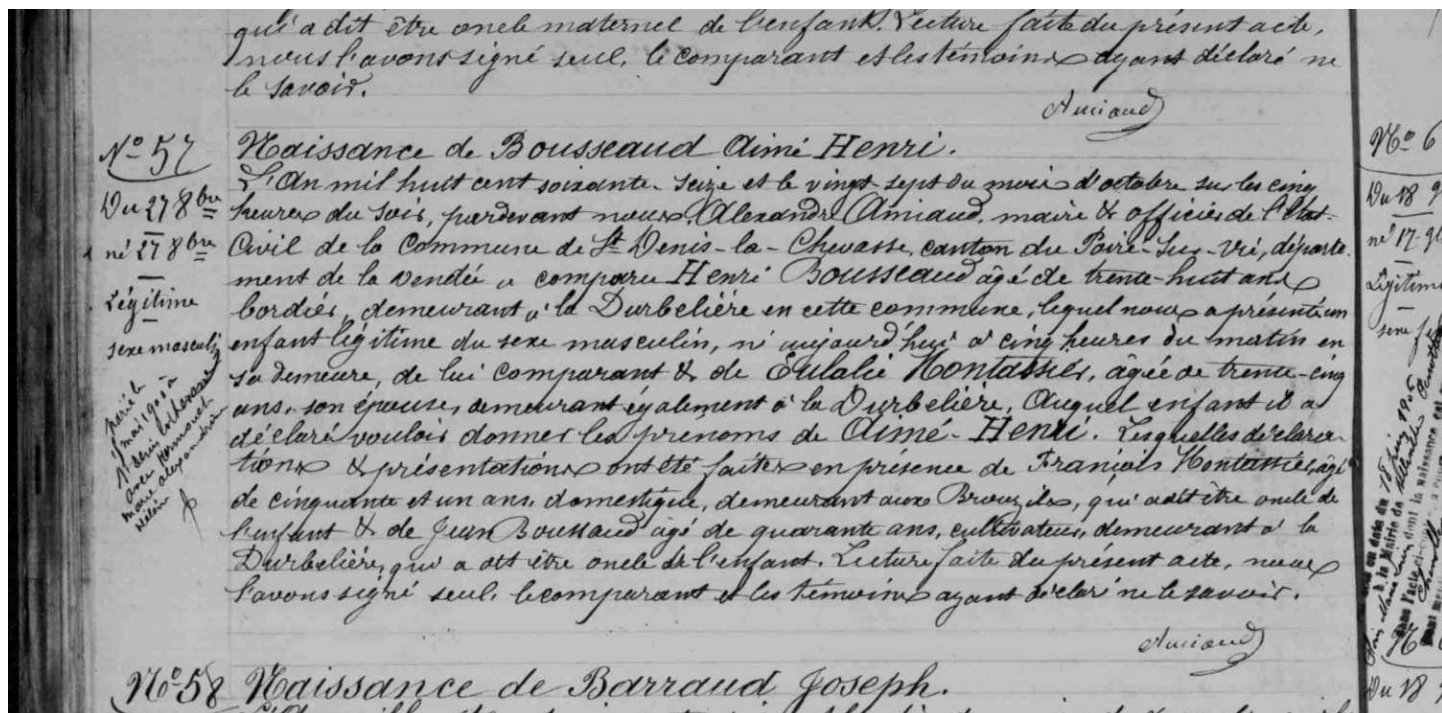 qui a dit être oncle maternel de l'enfant. Lecture faite du présent acte,
nous l'avons signé seul, le comparant et les témoins ayant déclaré ne
le savoir.
Amiaud
N° 57
Du 27 8bre
né 27 8bre
Légitime
sexe masculin
marié le
mai 190
à
avec
marie alexandrine
Naissance de Bousseaud Aimé Henri.
L'An mil huit cent soixante-seize et le vingt-sept du mois d'octobre sur les cinq
heures du soir, pardevant nous, Alexandre Amiaud, maire & officier de l'Etat-
Civil de la Commune de St Denis-la-Chevasse, canton du Poiré-sur-Vie, départe-
ment de la Vendée, a comparu Henri Bousseaud âgé de trente-huit ans
bordier, demeurant à la Durbelière en cette commune, lequel nous a présenté un
enfant légitime du sexe masculin, né aujourd'hui à cinq heures du matin en
sa demeure, de lui comparant & de Eulalie Montassier, âgée de trente-cinq
ans, son épouse, demeurant également à la Durbelière, Auquel enfant il a
déclaré vouloir donner les prénoms de Aimé-Henri. Lesquelles déclara-
tions & présentations ont été faites en présence de François Montassier, âgé
de cinquante et un ans, domestique, demeurant aux Brouzils, qui a dit être oncle de
l'enfant & de Jean Boussaud âgé de quarante ans, cultivateur, demeurant à la
Durbelière, qui a dit être oncle de l'enfant. Lecture faite du présent acte, nous
l'avons signé seul, le comparant et les témoins ayant déclaré ne le savoir.
Amiaud
N° 58
Naissance de Barraud Joseph.
N° 6
Du 18 9
né 17 9
Légitime
sexe
Du 18